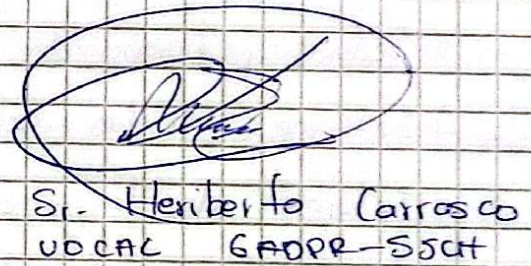 Sr. Heriberto Carrasco
VOCAL GADPR-SSCH